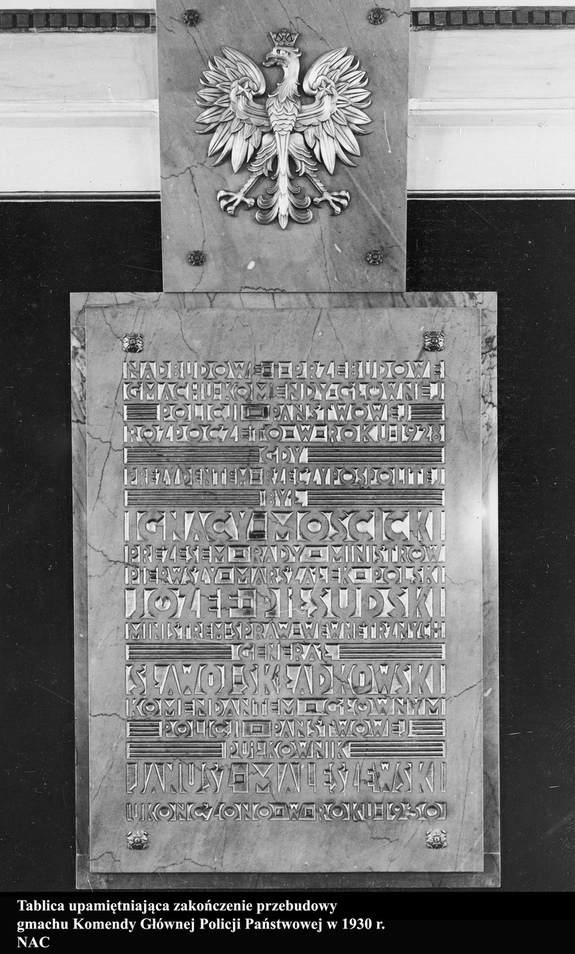 NADBUDOWĘ I PRZEBUDOWĘ
GMACHU KOMENDY GŁÓWNEJ
POLICJI PAŃSTWOWEJ
ROZPOCZĘTO W ROKU 1928
GDY
PREZYDENTEM RZECZYPOSPOLITEJ
BYŁ
IGNACY MOŚCICKI
PREZESEM RADY MINISTRÓW
PIERWSZY MARSZAŁEK POLSKI
JÓZEF PIŁSUDSKI
MINISTREM SPRAW WEWNĘTRZNYCH
GENERAŁ
SŁAWOJ SKŁADKOWSKI
KOMENDANTEM GŁÓWNYM
POLICJI PAŃSTWOWEJ
PUŁKOWNIK
JANUSZ MALESZEWSKI
UKOŃCZONO W ROKU 1930
Tablica upamiętniająca zakończenie przebudowy
gmachu Komendy Głównej Policji Państwowej w 1930 r.
NAC